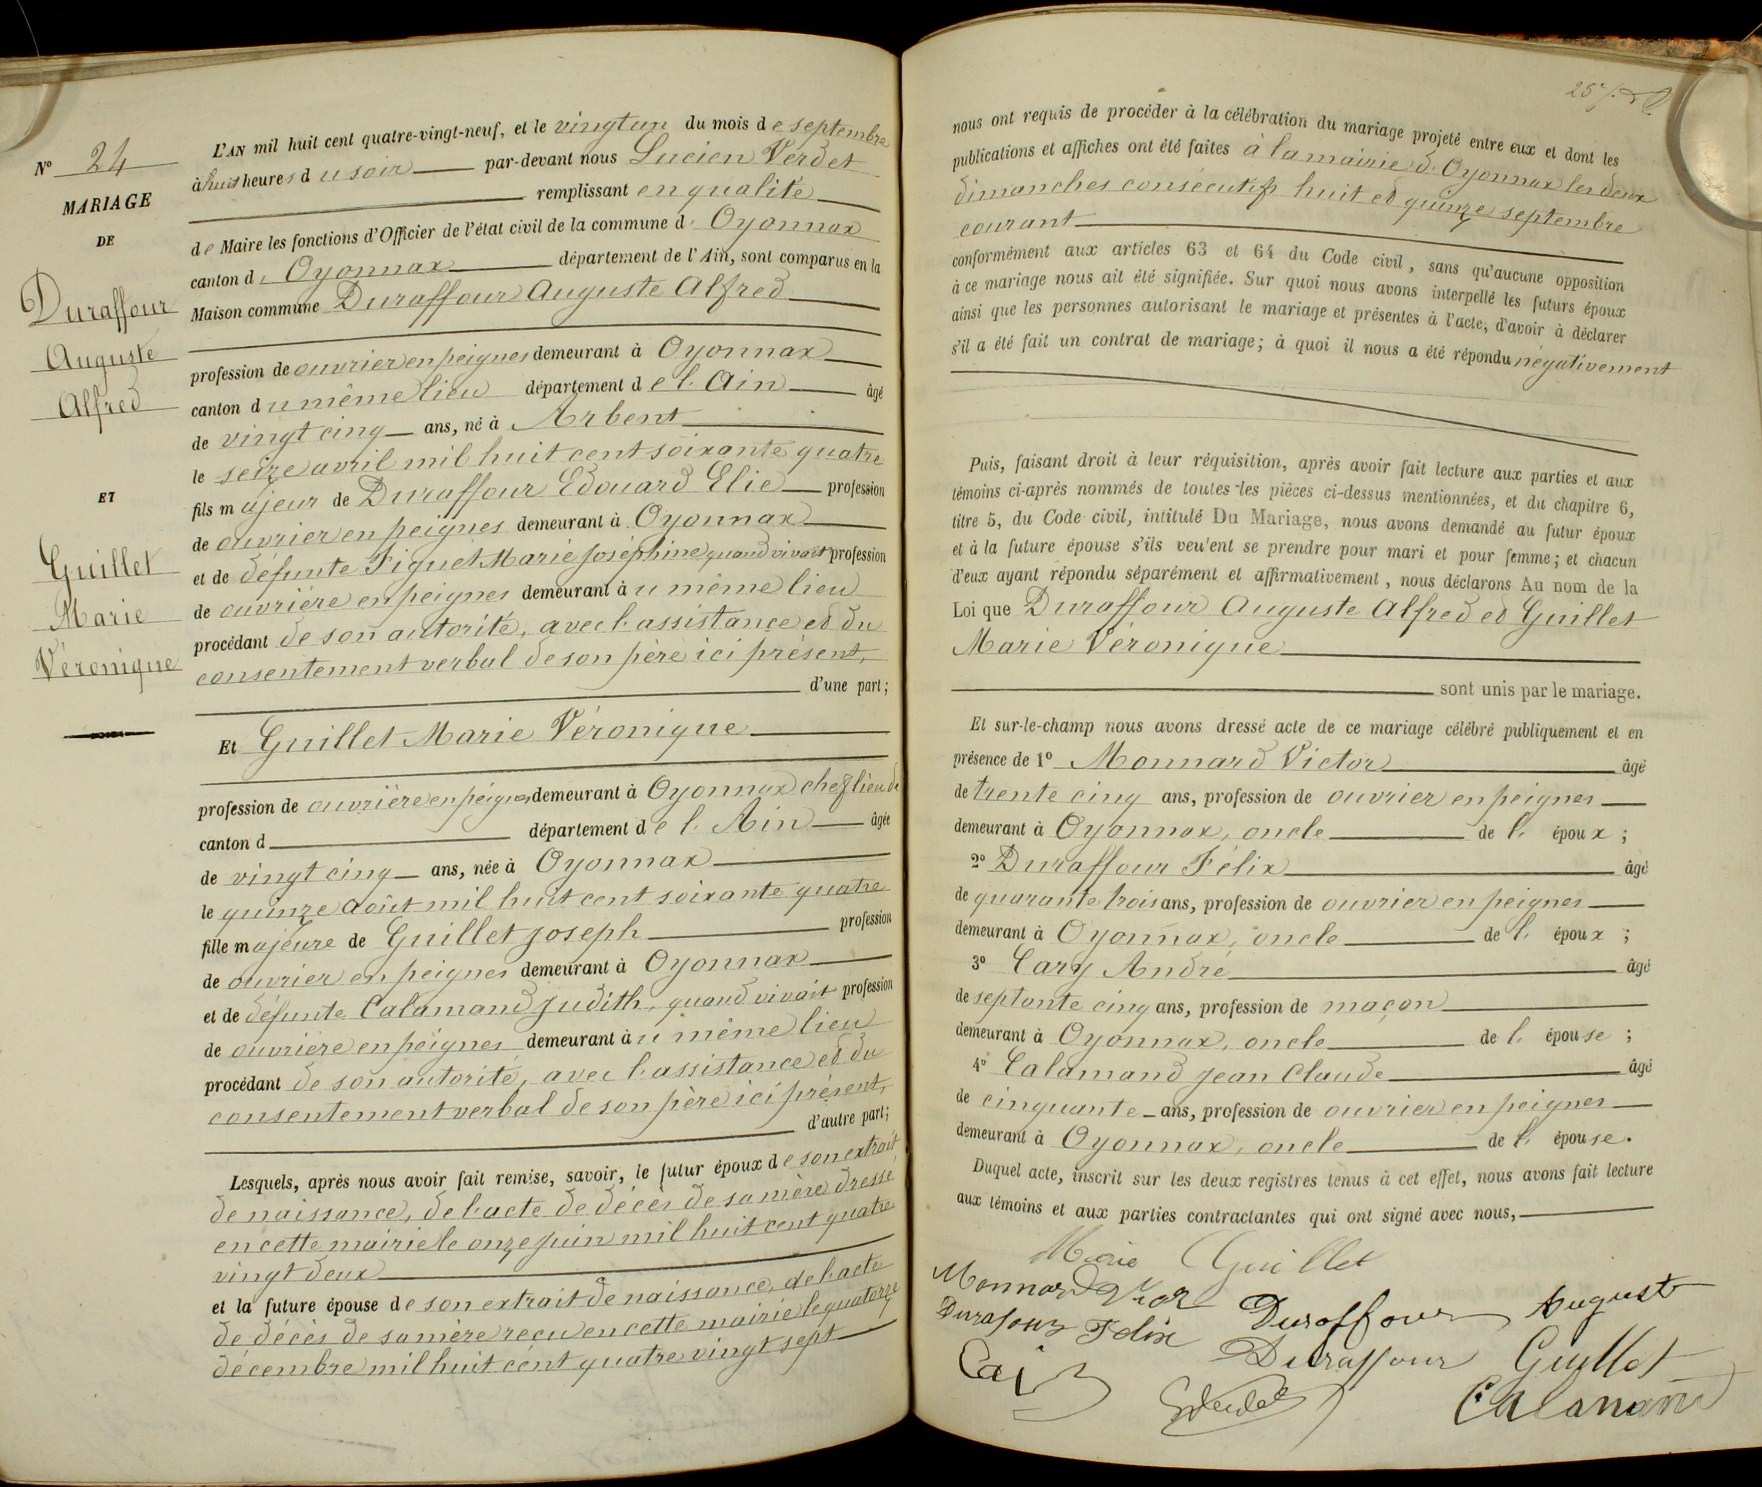 N° 24
MARIAGE
DE
Duraffour
Auguste
Alfred
ET
Guillet
Marie
Véronique
L'AN mil huit cent quatre-vingt-neuf, et le vingt un du mois de septembre
à huit heures du soir par-devant nous Lucien Verdet
remplissant en qualité
de Maire les fonctions d'Officier de l'état civil de la commune d' Oyonnax
canton d' Oyonnax département de l'Ain, sont comparus en la
Maison commune Duraffour Auguste Alfred
profession de ouvrier en peignes demeurant à Oyonnax
canton du même lieu département de l'Ain âgé
de vingt cinq ans, né à Arbent
le seize avril mil huit cent soixante quatre
fils majeur de Duraffour Edouard Elie profession
de ouvrier en peignes demeurant à Oyonnax
et de défunte Figuet Marie Joséphine, quand vivait profession
de ouvrière en peignes demeurant au même lieu
procédant de son autorité, avec l'assistance et du
consentement verbal de son père ici présent,
d'une part;
Et Guillet Marie Véronique
profession de ouvrière en peignes demeurant à Oyonnax chef lieu de
canton d département de l'Ain âgée
de vingt cinq ans, née à Oyonnax
le quinze août mil huit cent soixante quatre
fille majeure de Guillet Joseph profession
de ouvrier en peignes demeurant à Oyonnax
et de défunte Calamand Judith, quand vivait profession
de ouvrière en peignes demeurant au même lieu
procédant de son autorité, avec l'assistance et du
consentement verbal de son père ici présent,
d'autre part;
Lesquels, après nous avoir fait remise, savoir, le futur époux de son extrait
de naissance, de l'acte de décès de sa mère dressé
en cette mairie le onze juin mil huit cent quatre
vingt deux
et la future épouse de son extrait de naissance, de l'acte
de décès de sa mère reçu en cette mairie le quatorze
décembre mil huit cent quatre vingt sept
25
nous ont requis de procéder à la célébration du mariage projeté entre eux et dont les
publications et affiches ont été faites à la mairie d'Oyonnax les deux
dimanches consécutifs huit et quinze septembre
courant
conformément aux articles 63 et 64 du Code civil, sans qu'aucune opposition
à ce mariage nous ait été signifiée. Sur quoi nous avons interpellé les futurs époux
ainsi que les personnes autorisant le mariage et présentes à l'acte, d'avoir à déclarer
s'il a été fait un contrat de mariage; à quoi il nous a été répondu négativement
Puis, faisant droit à leur réquisition, après avoir fait lecture aux parties et aux
témoins ci-après nommés de toutes les pièces ci-dessus mentionnées, et du chapitre 6,
titre 5, du Code civil, intitulé Du Mariage, nous avons demandé au futur époux
et à la future épouse s'ils veulent se prendre pour mari et pour femme; et chacun
d'eux ayant répondu séparément et affirmativement, nous déclarons Au nom de la
Loi que Duraffour Auguste Alfred et Guillet
Marie Véronique
sont unis par le mariage.
Et sur-le-champ nous avons dressé acte de ce mariage célébré publiquement et en
présence de 1° Monnard Victor âgé
de trente cinq ans, profession de ouvrier en peignes
demeurant à Oyonnax, oncle de l'époux;
2° Duraffour Félix âgé
de quarante trois ans, profession de ouvrier en peignes
demeurant à Oyonnax, oncle de l'époux;
3° Cary André âgé
de septante cinq ans, profession de maçon
demeurant à Oyonnax, oncle de l'épouse;
4° Calamand Jean Claude âgé
de cinquante ans, profession de ouvrier en peignes
demeurant à Oyonnax, oncle de l'épouse.
Duquel acte, inscrit sur les deux registres tenus à cet effet, nous avons fait lecture
aux témoins et aux parties contractantes qui ont signé avec nous,
Marie Guillet
Monnard
Duraffour Auguste
Durafour Felix
Duraffour Guillet
Calamand